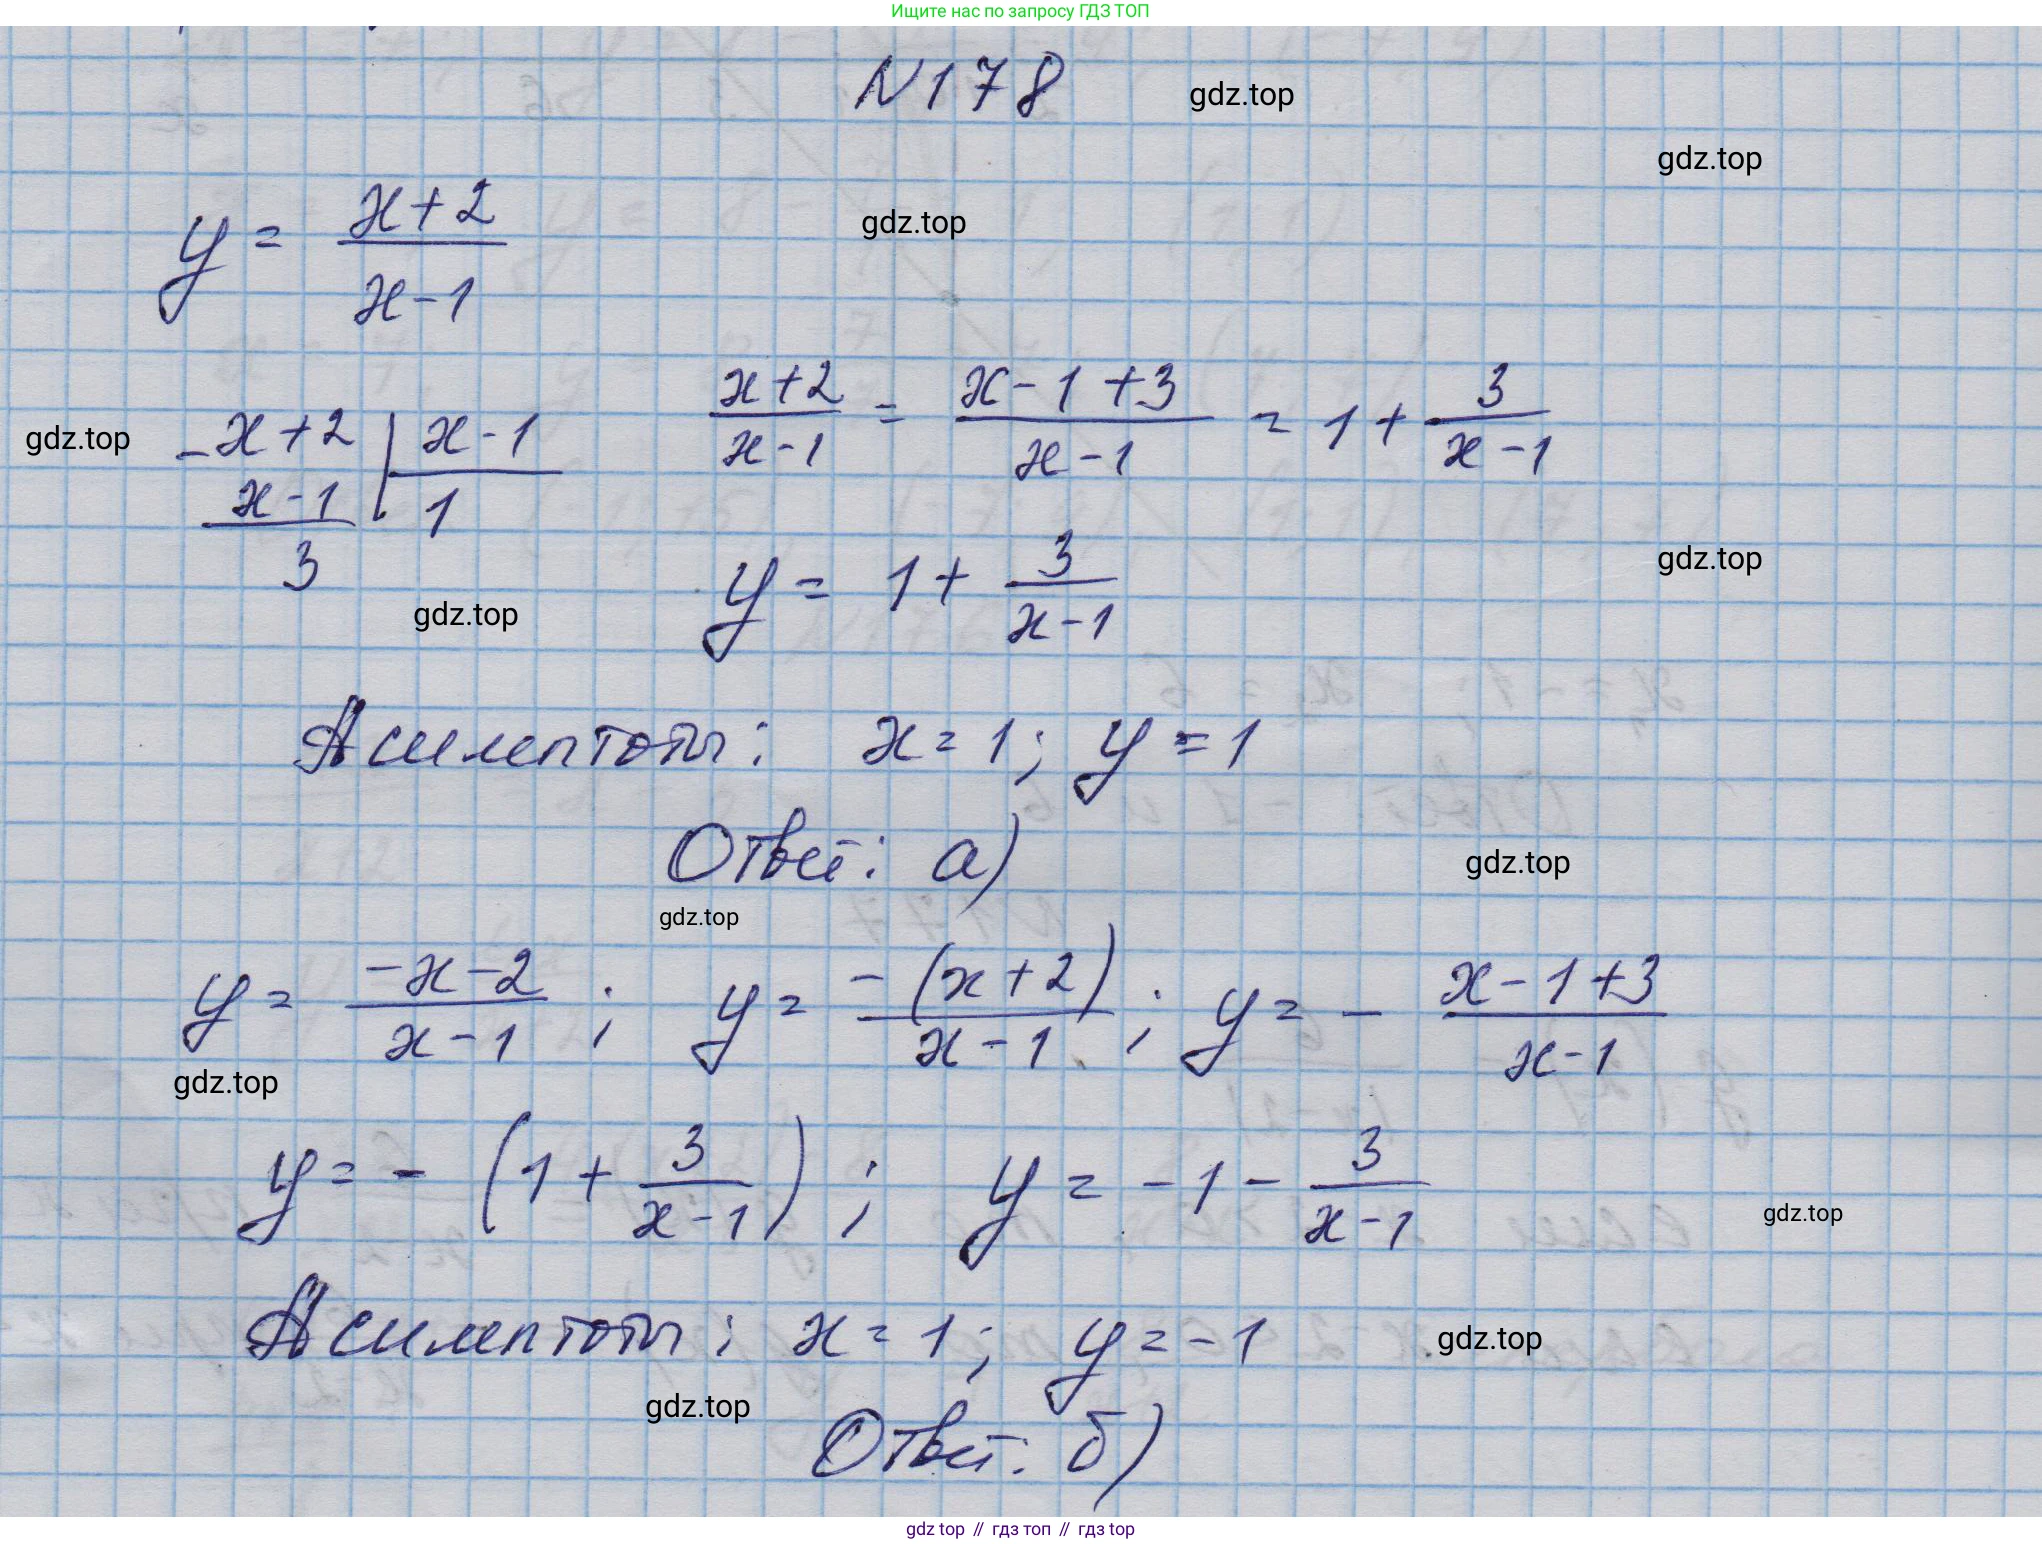 Ищите нас по запросу ГДЗ ТОП
N178 gdz.top
gdz.top
y = (x+2)/(x-1) gdz.top
gdz.top -x+2 | x-1
x-1 | 1
3
(x+2)/(x-1) = (x-1+3)/(x-1) = 1 + 3/(x-1)
y = 1 + 3/(x-1) gdz.top
gdz.top
Асимптоты: x = 1; y = 1
Ответ: а) gdz.top
gdz.top
y = (-x-2)/(x-1); y = (-(x+2))/(x-1); y = - (x-1+3)/(x-1)
gdz.top
y = - (1 + 3/(x-1)); y = -1 - 3/(x-1) gdz.top
Асимптоты: x = 1; y = -1 gdz.top
gdz.top
Ответ: б)
gdz top // гдз топ // gdz top